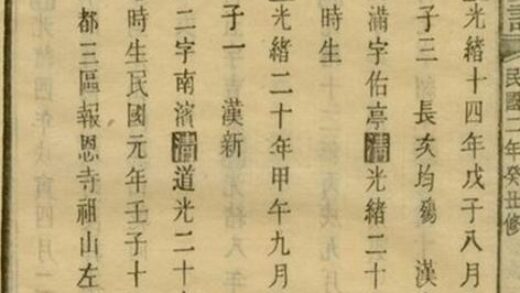 民國二年癸丑修
光緒十四年戊子八月
子三 長亥均殤 漢
滿字佑亭清光緒二十
時生
光緒二十年甲午九月
子一 漢新
二字南濱清道光二十
時生民國元年壬子十
都三區報恩寺祖山左